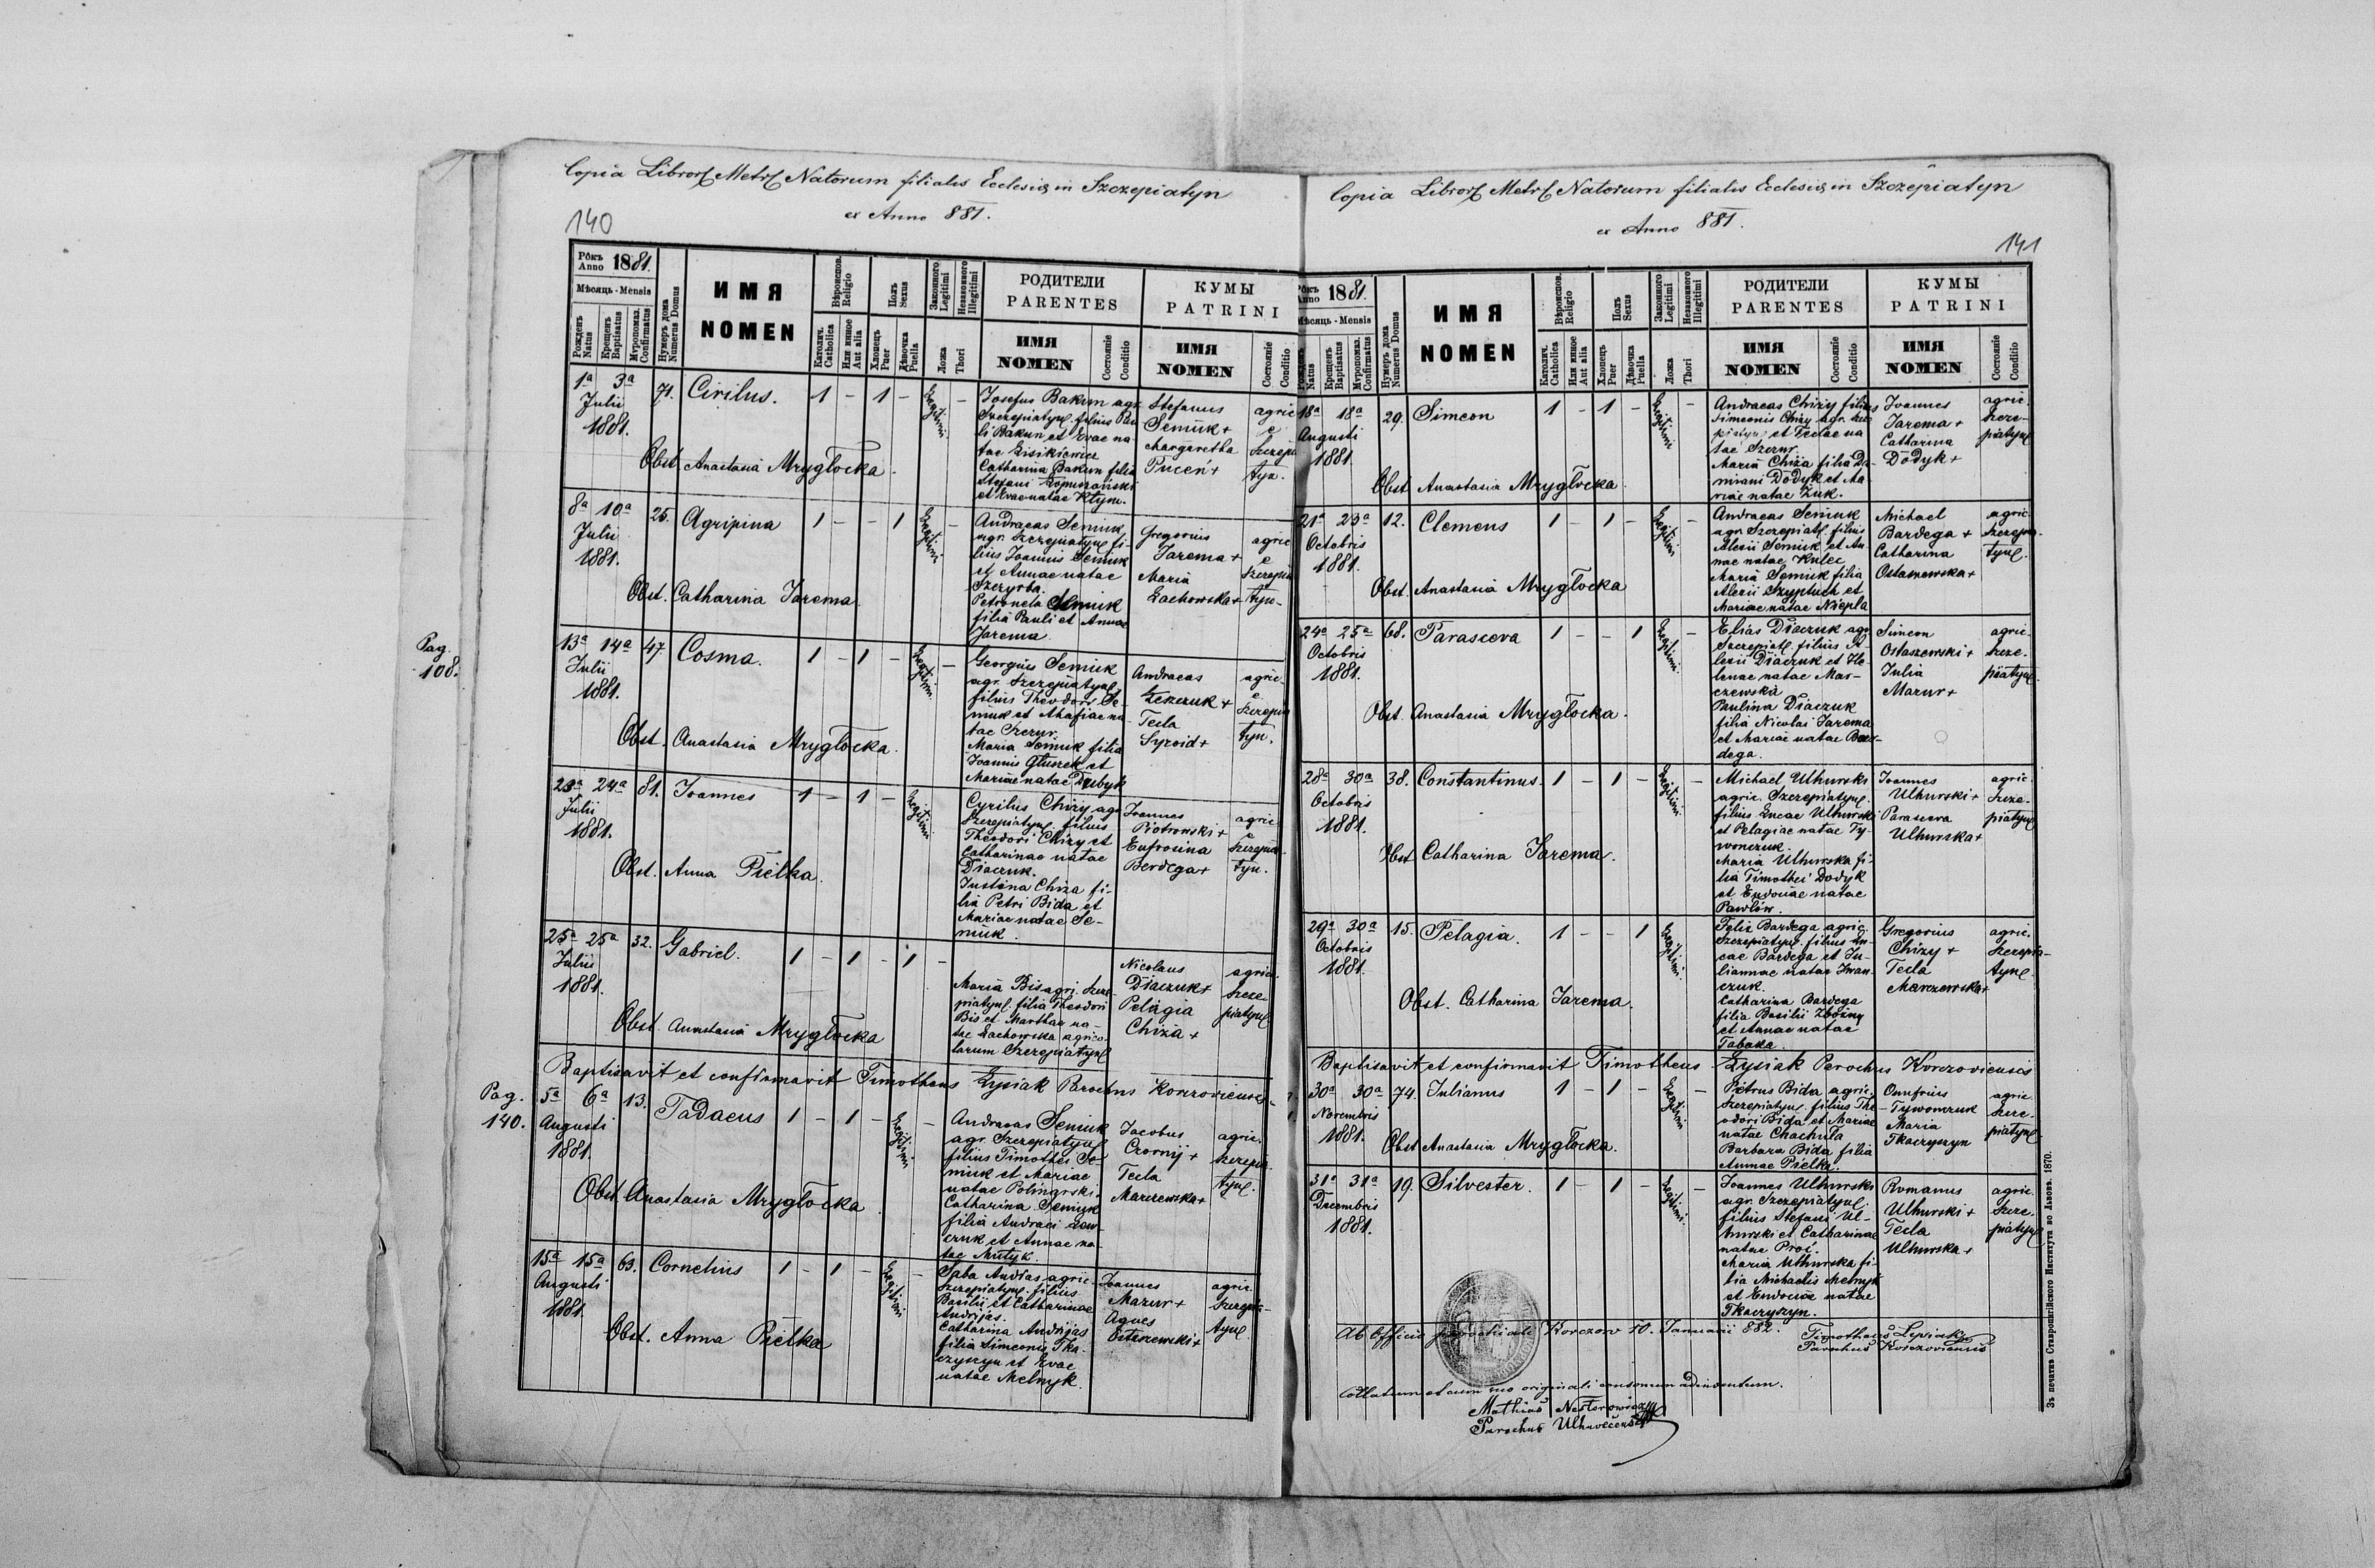 Copia Libror Metr Natorum filialis Ecclesiæ in Szczepiatyn
ex Anno 881.
140
Рôкъ
Anno 1881.
Мѣсяць - Mensis
Рожденъ
Natus
Крещенъ
Baptisatus
Мѵропомаз.
Confirmatus
Нумеръ дома
Numerus Domus
ИМЯ
NOMEN
Вѣроиспов.
Religio
Католич.
Catholica
Или инное
Aut alia
Полъ
Sexus
Хлопець
Puer
Дѣвочка
Puella
Законного
Legitimi
Незаконного
Illegitimi
Ложа
Thori
РОДИТЕЛИ
PARENTES
ИМЯ
NOMEN
Состояніе
Conditio
КУМЫ
PATRINI
ИМЯ
NOMEN
Состояніе
Conditio
1a 3a
Julii
1881.
71. Cirilus. 1 - 1 - Legitimi -
Josefus Bakun agr.
Szczepiatyn. filius Pau
li Bakun et Evae na
tae Lisikiewicz
Catharina Bakun filia
Stefani Łopuszański
et Evae natae Kłym.
Stefanus
Semiuk +
Margaretha
Pucen +
agric
e
Szczepia
tyn.
Obst. Anastasia Mrygłocka
8a 10a
Julii
1881.
25. Agripina 1 - - 1 Legitimi -
Andraeas Semiuk
agr. Szczepiatyn. fi-
lius Joannis Semiuk
et Annae natae
Szczyrba.
Petronela Semiuk
filia Pauli et Annae
Jarema
Gregorius
Jarema +
Maria
Lachowska +
agric
e
Szczepia
tyn-
Obst. Catharina Jarema
Pag.
108.
13a 14a
Julii
1881.
47. Cosma. 1 - 1 - Legitimi -
Georgius Semiuk
agr. Szczepiatyn.
filius Theodori Se-
miuk et Ahafiae na
tae Czezur.
Maria Semiuk filia
Joannis Głuszek et
Mariae natae Dubyk
Andraeas
Leszczuk +
Tecla
Syroid +
agric.
e
Szczepia
tyn.
Obst. Anastasia Mrygłocka.
23a 24a
Julii
1881.
81. Joannes 1 - 1 - Legitimi
Cyrilus Chizy agr
Szczepiatyn. filius
Theodori Chizy et
Catharinae natae
Diaczuk.
Justina Chiza fi-
lia Petri Bida et
Mariae natae Se-
miuk.
Joannes
Piotrowski +
Eufrosina
Berdega +
agric
e
Szczepia-
tyn.
Obst. Anna Piełka.
25a 25a
Julii
1881.
32. Gabriel. 1 - 1 - 1 -
Maria Bis agri. Szcze-
piatyn. filia Theodori
Bis et Marthae na-
tae Lachowska agrico-
larum Szczepiatyn
Nicolaus
Diaczuk +
Pelagia
Chiza +
agric.
Szcze-
piatyn
Obst. Anastasia Mrygłocka
Baptisavit et confirmavit Timotheus Łysiak Parochus Korczoviensis
Pag.
140.
5a 6a
Augusti
1881.
13. Tadaeus 1 - 1 - Legitimi -
Andraeas Semiuk
agr. Szczepiatyn
filius Timothei Se-
miuk et Mariae
natae Polingrski.
Catharina Semiuk
filia Andraei Law-
czuk et Annae na-
tae Mutyk.
Jacobus
Czornij +
Tecla
Marczewska +
agric.
Szczepia
tyn.
Obst. Anastasia Mrygłocka
15a 15a
Augusti
1881
63. Cornelius 1 - 1 - Legitimi -
Saba Andras agric.
Szczepiatyn. filius
Basilii et Catharinae
Andrijas.
Catharina Andrijas
filia Simeonis Tka-
czyszyn et Evae
natae Melnyk.
Joannes
Mazur +
Agnes
Ostaszewski +
agric.
Szczepia-
tyn.
Obst. Anna Piełka
Copia Libror Metr Natorum filialis Ecclesiæ in Szczepiatyn
ex Anno 881.
141
Рôкъ
Anno 1881.
Мѣсяць - Mensis
Рожденъ
Natus
Крещенъ
Baptisatus
Мѵропомаз.
Confirmatus
Нумеръ дома
Numerus Domus
ИМЯ
NOMEN
Вѣроиспов.
Religio
Католич.
Catholica
Или инное
Aut alia
Полъ
Sexus
Хлопець
Puer
Дѣвочка
Puella
Законного
Legitimi
Незаконного
Illegitimi
Ложа
Thori
РОДИТЕЛИ
PARENTES
ИМЯ
NOMEN
Состояніе
Conditio
КУМЫ
PATRINI
ИМЯ
NOMEN
Состояніе
Conditio
18a 18a
Augusti
1881
29. Simeon 1 - 1 - Legitimi -
Andraeas Chizy filius
Simeonis Chizy agr. Szcze
piatyn et Teclae na
tae Szczur.
Maria Chiza filia Da-
miani Dodyk et Ma
riae natae Żuk.
Joannes
Jarema +
Catharina
Dodyk +
agric.
Szcze-
piatyn
Obst. Anastasia Mrygłocka
21a 23a
Octobris
1881.
12. Clemens 1 - 1 - Legitimi -
Andraeas Semiuk
agr. Szczepiat. filius
Alexii Semiuk et An-
nae natae Kulec
Maria Semiuk filia
Alexii Szypluch et
Mariae natae Niepla
Michael
Bardega +
Catharina
Ostaszewska +
agric.
Szczepia-
tyn.
Obst. Anastasia Mrygłocka
24a 25a
Octobris
1881.
68. Parasceva 1 - - 1 Legitimi -
Elias Diaczuk agr
Szczepiat. filius A-
lexii Diaczuk et He-
lenae natae Mar-
czewska
Paulina Diaczuk
filia Nicolai Jarema
et Mariae natae Bar-
dega.
Simeon
Ostaszewski +
Julia
Mazur +
agric.
Szcze-
piatyn.
Obst. Anastasia Mrygłocka.
28a 30a
Octobris
1881.
38. Constantinus. 1 - 1 - Legitimi -
Michael Ulhurski
agric. Szczepiatyn.
filius Lucae Ulhurski
et Pelagiae natae Ty-
wonczuk.
Maria Ulhurska fi-
lia Timothei Dodyk
et Eudociae natae
Pawłów.
Joannes
Ulhurski +
Parasceva
Ulhurska +
agric.
Szcze-
piatyn
Obst. Catharina Jarema.
29a 30a
Octobris
1881.
15. Pelagia. 1 - - 1 Legitimi
Felix Bardega agric.
Szczepiatyn. filius Lu-
cae Bardega et Ju-
liannae natae Iwan-
czuk.
Catharina Bardega
filia Basilii Zbożny
et Annae natae
Tabaka.
Gregorius
Chizy +
Tecla
Marczewska +
agric.
Szczepia-
tyn.
Obst. Catharina Jarema.
Baptisavit et confirmavit Timotheus Łysiak Parochus Korczoviensis
30a 30a
Novembris
1881.
74. Julianus 1 - 1 - Legitimi -
Petrus Bida agric.
Szczepiatyn. filius The-
odori Bida et Mariae
natae Chachuła
Barbara Bida filia
Annae Piełka.
Onufrius
Tywonczuk
Maria
Tkaczyszyn
agric.
Szcze-
piatyn.
Obst. Anastasia Mrygłocka.
31a 31a
Decembris
1881.
19. Silvester. 1 - 1 - Legitimi -
Joannes Ulhurski
agr. Szczepiatyn.
filius Stefani Ul-
hurski et Catharinae
natae Proć.
Maria Ulhurska fi-
lia Michaelis Melnyk
et Eudociae natae
Tkaczyszyn.
Romanus
Ulhurski +
Tecla
Ulhurska +
agric.
Szcze-
piatyn
Ab Officio parochiali Korczow 10. Januarii 882.
Timotheus Łysiak
Parochus Korczoviensis
Collatum et cum suo originali consonum adinventum.
Mathias Nestorowicz
Parochus Ulhuvecensis
Зъ печатнѣ Ставропигійского Института во Львовѣ. 1870.